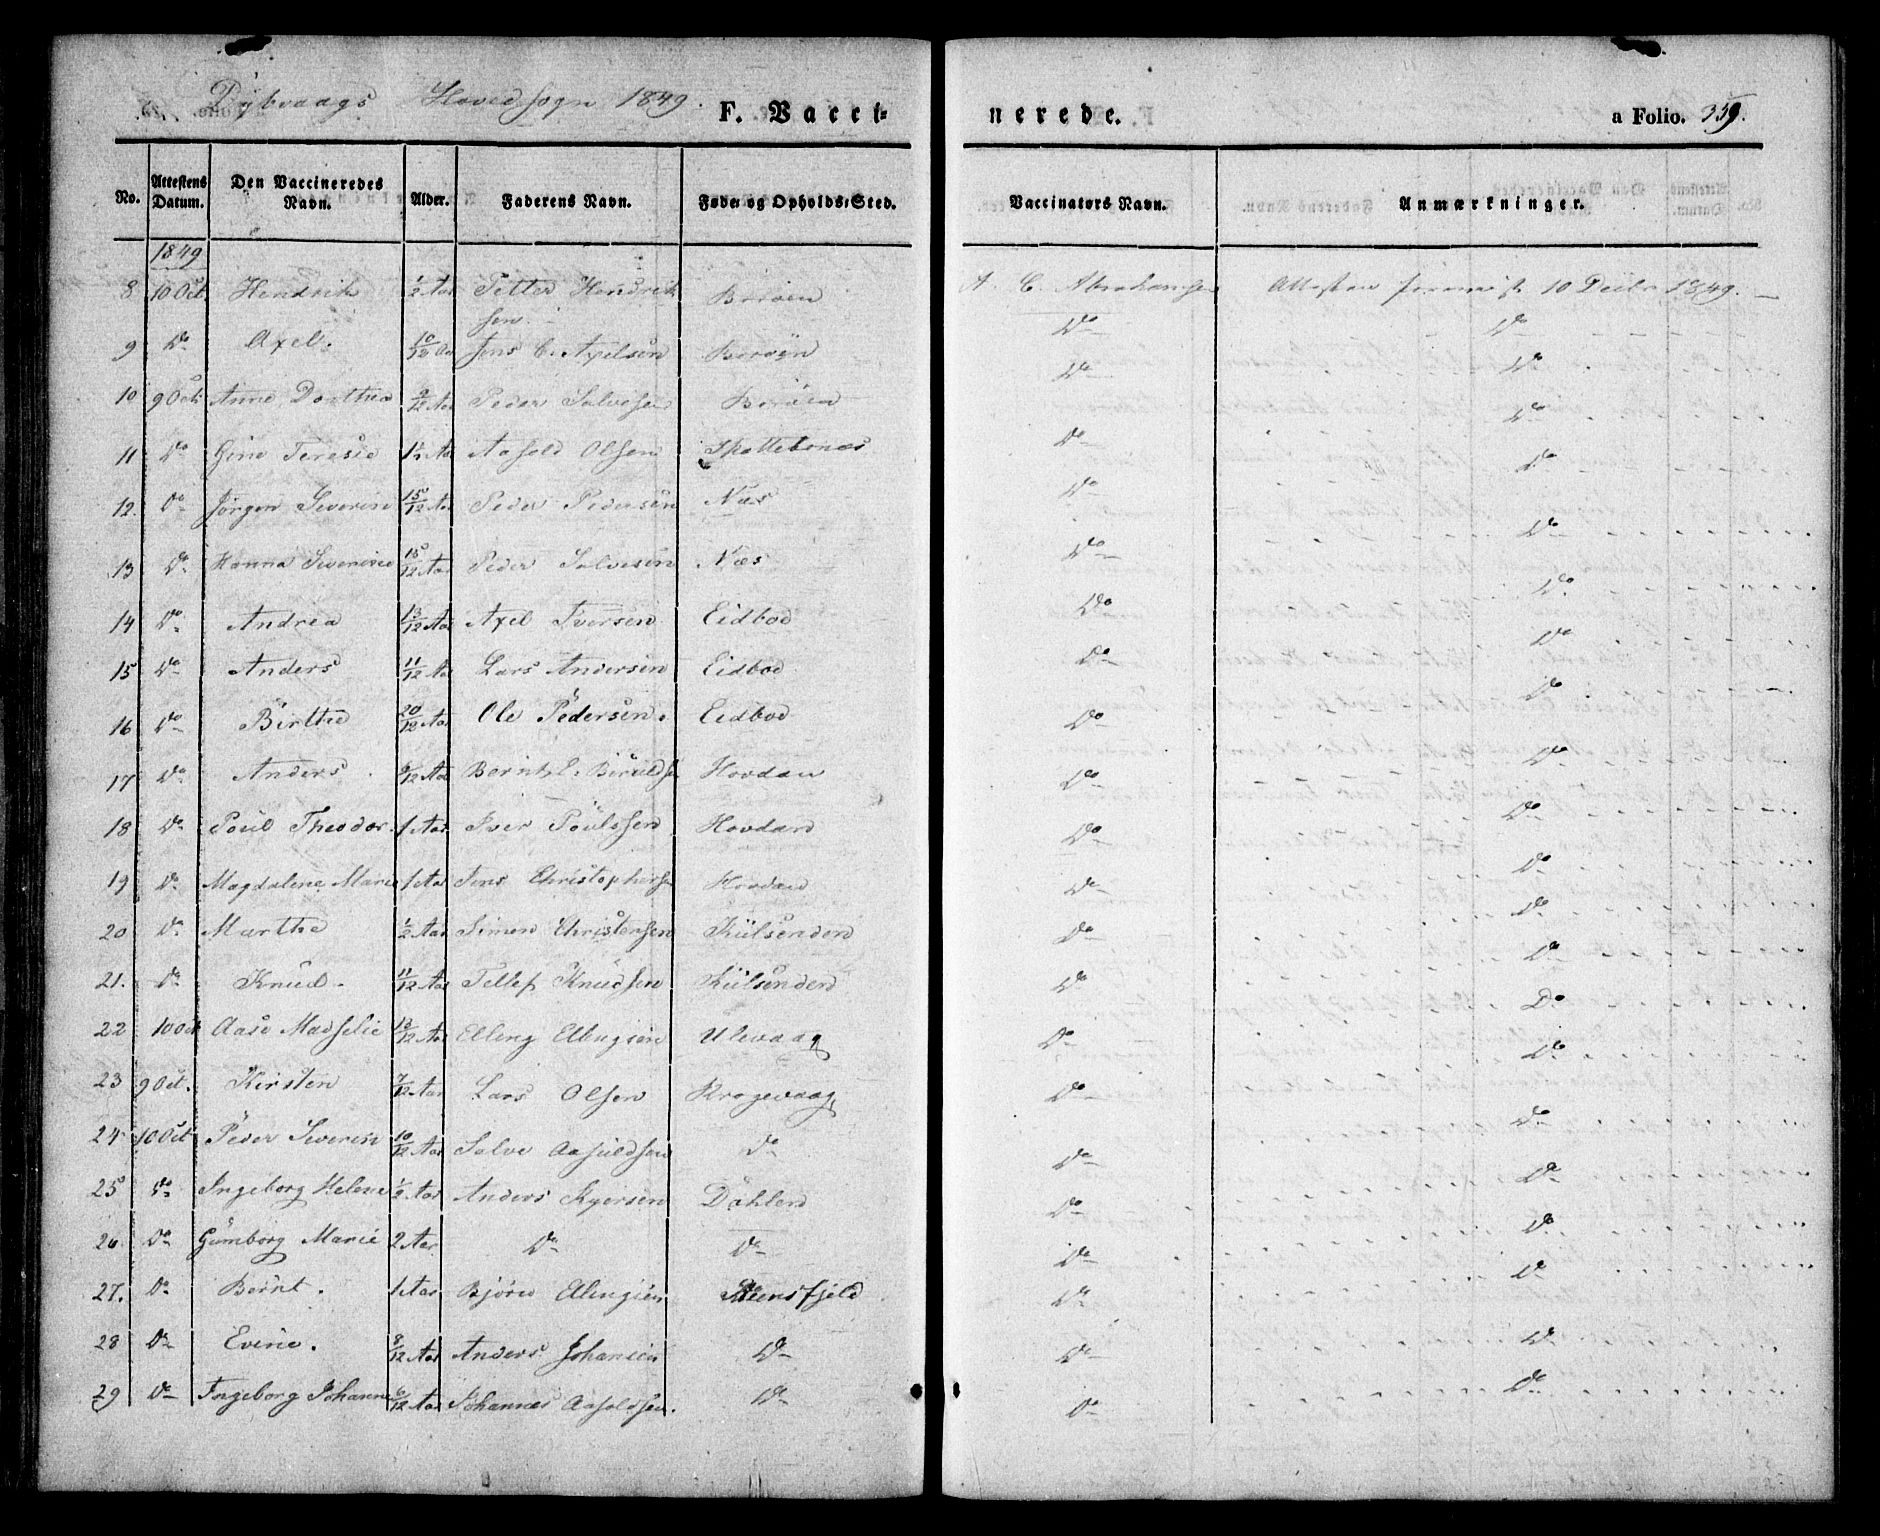 Dybvaags Hovedsogn 1849. F. Vacci= nerede. a Folio. 359.
No. Attestens Datum. Den Vaccineredes Navn. Alder. Faderens Navn. Føde og Opholds-Sted. Vaccinators Navn. Anmærkninger.
1849
8 10 Oct Hendrik 1/2 Aar Petter Hendriksen Boröen A. C. Abrahamsen Attesten 10 Decbr 1849.
9 Do Axel. 10/12 Aar Jens C. Axelsen Boröen Do Do
10 9 Oct Anne Dorthea 9/12 Aar Peder Salvesen Boröen Do Do
11 Do Gine Teresie Aar Aasold Olsen Do Do
12. Do Jørgen Severine 15/12 Aar Peder Pedersen Næs Do Do
13 Do Hanna Severine 15/12 Aar Peder Salvesen Næs Do Do
14 Do Andrea 13/12 Aar Axel Iversen Eidbod Do Do
15 Do Anders 11/12 Aar Lars Andersen Eidbod Do Do
16 Do Birthe 20/12 Aar Ole Pedersen. Eidbod Do Do
17 Do Anders 9/12 Aar Hovdan Do Do
18 Do Poul Theodor. 1 Aar Iver Poulssen Hovdan Do Do
19 Do Magdalene Marie 1 Aar Jens Christophersen Hovdan Do Do
20 Do Marthe 1/2 Aar Simon Christensen Kilsenden Do Do
21. Do Knud. 11/12 Aar Tellef Knudsen Kilsenden Do Do
22 10 Oct Aase Madselie 13/12 Aar Elling Ellingsen Ulevaag Do Do
23 9 Oct. Kirsten 7/12 Aar Lars Olsen Krogevaag Do Do
24 10 Oct Peder Severin 10/12 Aar Salve Aasuldsen Do Do Do
25 Do Ingeborg Helene 1/2 Aar Anders Dahlen Do Do
26 Do Gumborg Marie 2 Aar. Do Do Do Do
27. Do Bernt. 1 Aar Bjørn Ellingsen Steensfjeld Do Do
28 Do Evine. 8/12 Aar Anders Johansen Do Do Do
29 Do Ingeborg Johanne 6/12 Aar Johannes Aasoldsen. Do Do Do